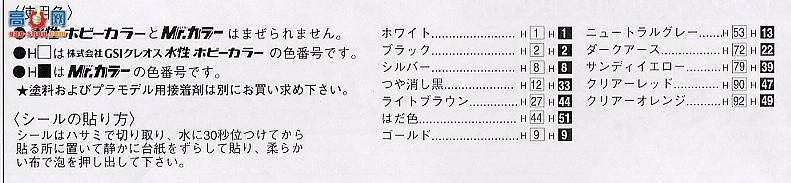 〈使用色〉
●水性ホビーカラーとMr.カラーはまぜられません。
●H□は株式会社GSIクレオス水性ホビーカラーの色番号です。
●H■はMr.カラーの色番号です。
★塗料およびプラモデル用接着剤は別にお買い求め下さい。
〈シールの貼り方〉
シールはハサミで切り取り、水に30秒位つけてから
貼る所に置いて静かに台紙をずらして貼り、柔らか
い布で泡を押し出して下さい。
ホワイト……………………H 1 H 1
ブラック……………………H 2 H 2
シルバー……………………H 8 H 8
つや消し黒…………………H 12 H 33
ライトブラウン……………H 27 H 44
はだ色………………………H 44 H 51
ゴールド……………………H 9 H 9
ニュートラルグレー……H 53 H 13
ダークアース……………H 72 H 22
サンディイエロー………H 79 H 39
クリアーレッド…………H 90 H 47
クリアーオレンジ………H 92 H 49